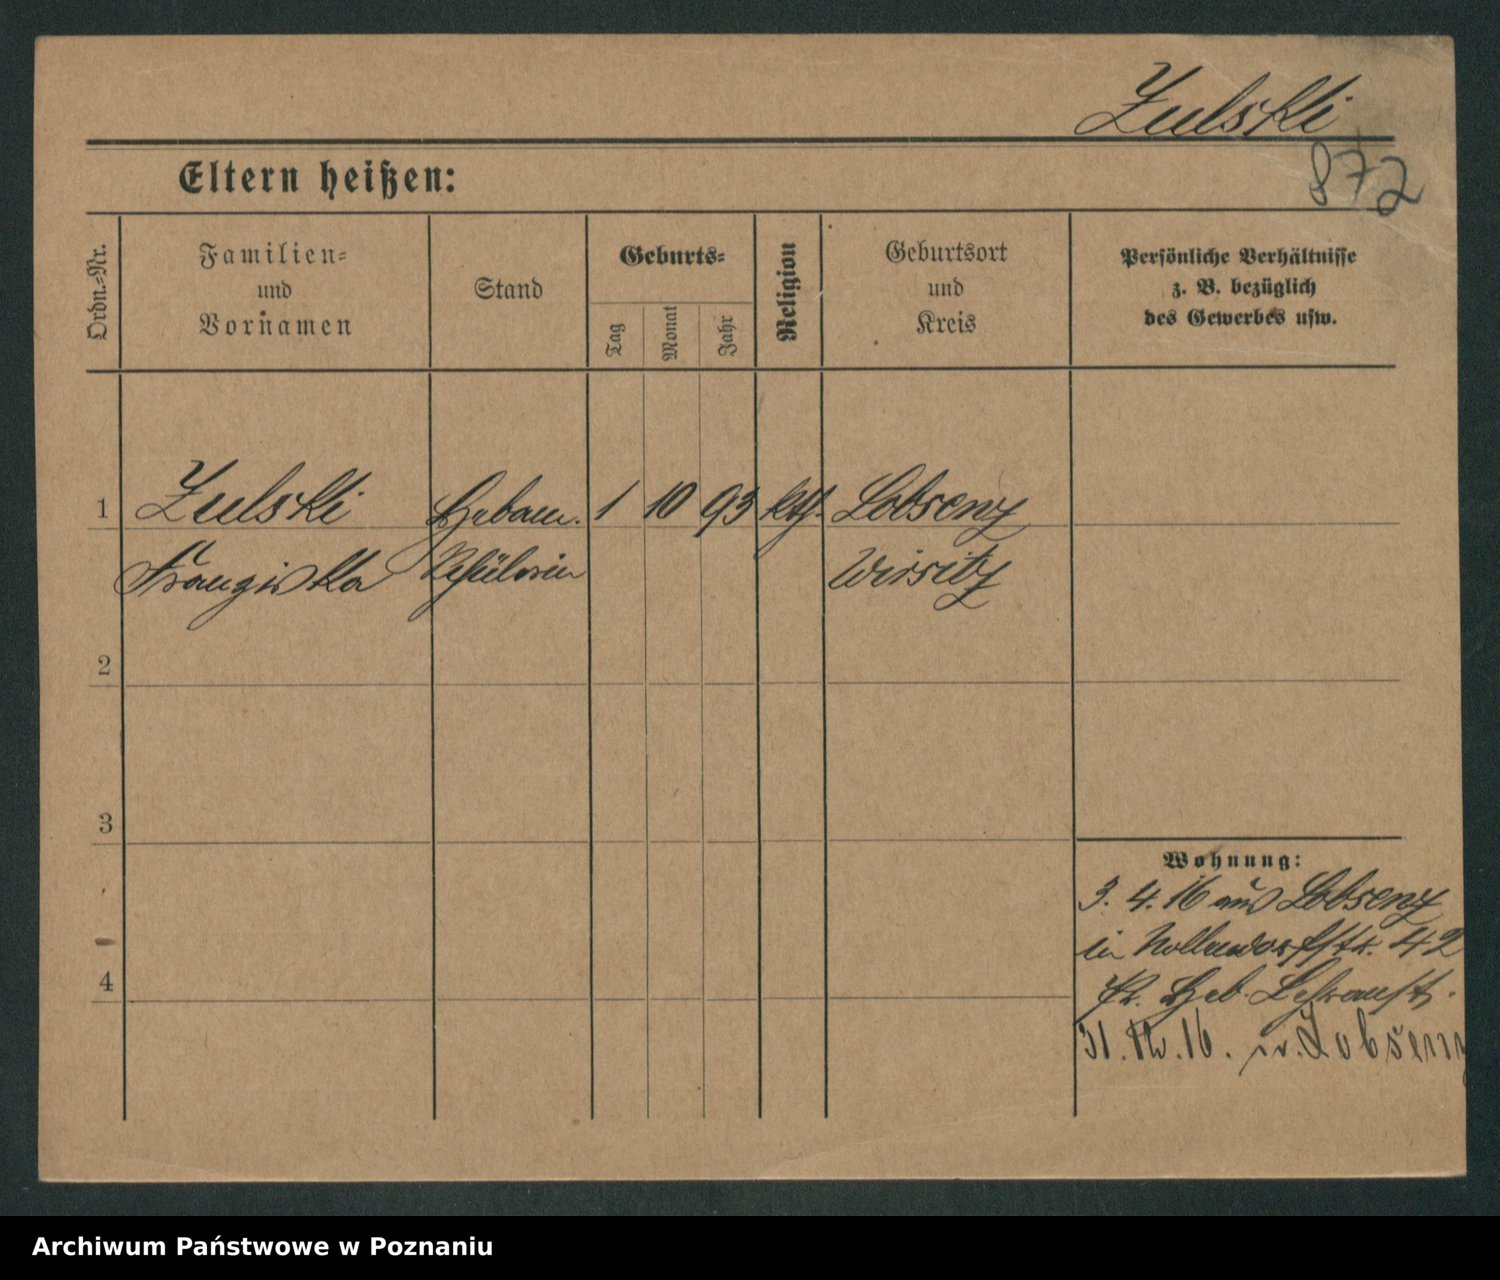 Zulski
872
Eltern heißen:
Ordn.-Nr.
Familien-
und
Vornamen
Stand
Geburts-
Tag
Monat
Jahr
Religion
Geburtsort
und
Kreis
Persönliche Verhältnisse
z. B. bezüglich
des Gewerbes usw.
1 Zulski Hebam. 1 10 93 kth. Lobsenz
Franziska Schülerin Wirsitz
2
3
4
Wohnung:
3. 4. 16 aus Lobsenz
in Nollendorfstr. 42
Pr. Heb. Lehranst.
31.12.16. n. Lobsenz
Archiwum Państwowe w Poznaniu